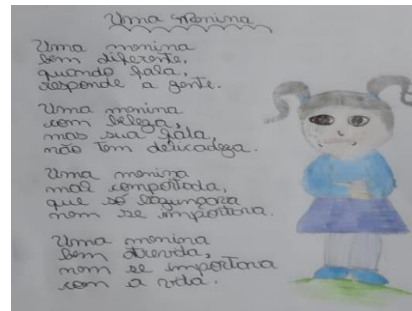 Uma menina
Uma menina
bem diferente,
quando fala,
responde a gente.
Uma menina
com beleza,
mas sua fala,
não tem delicadeza.
Uma menina
mal comportada,
que só
nem se importava.
Uma menina
bem atrevida,
nem se importava
com a vida.